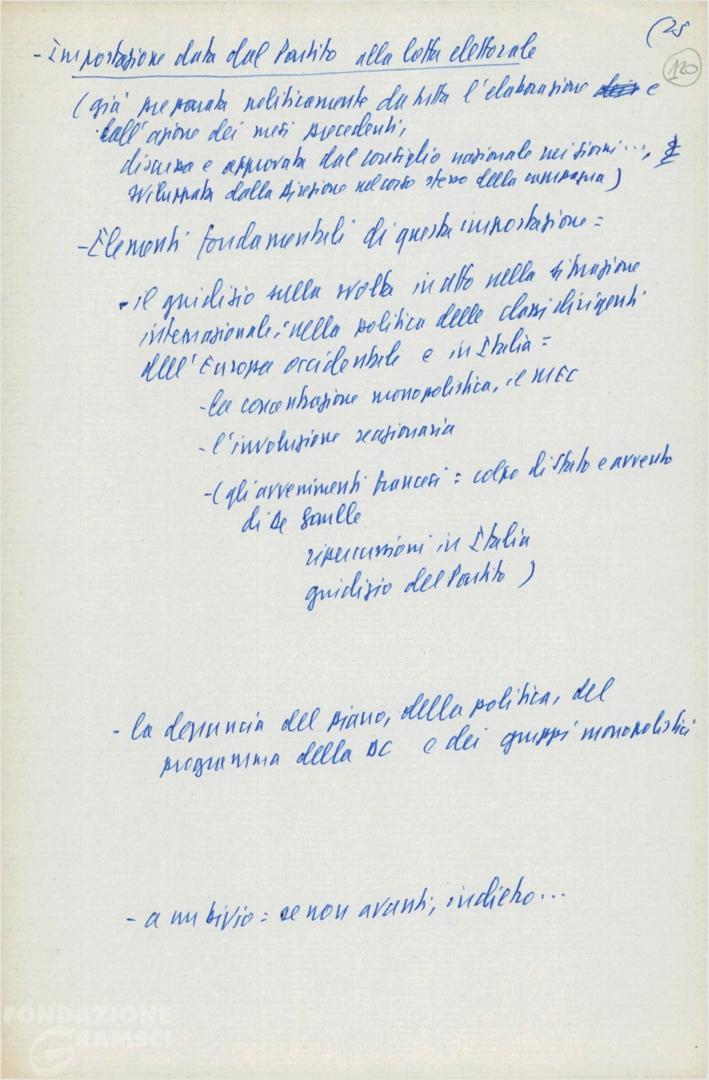 (25
120
- Impostazione data dal Partito alla lotta elettorale
(già preparata politicamente da tutta l'elaborazione e
dall'azione dei mesi precedenti,
discussa e approvata dal consiglio nazionale nei giorni...,
sviluppata dalla Direzione nel corso stesso della campagna)
- Elementi fondamentali di questa impostazione =
- il giudizio sulla svolta in atto nella situazione
internazionale, nella politica delle classi dirigenti
dell'Europa occidentale e in Italia =
- la concentrazione monopolistica, il MEC
- l'involuzione reazionaria
- (gli avvenimenti francesi = colpo di Stato e avvento
di De Gaulle
ripercussioni in Italia
giudizio del Partito)
- la denuncia del piano, della politica, del
programma della DC e dei gruppi monopolistici
- a un bivio = se non avanti, indietro...
FONDAZIONE
GRAMSCI